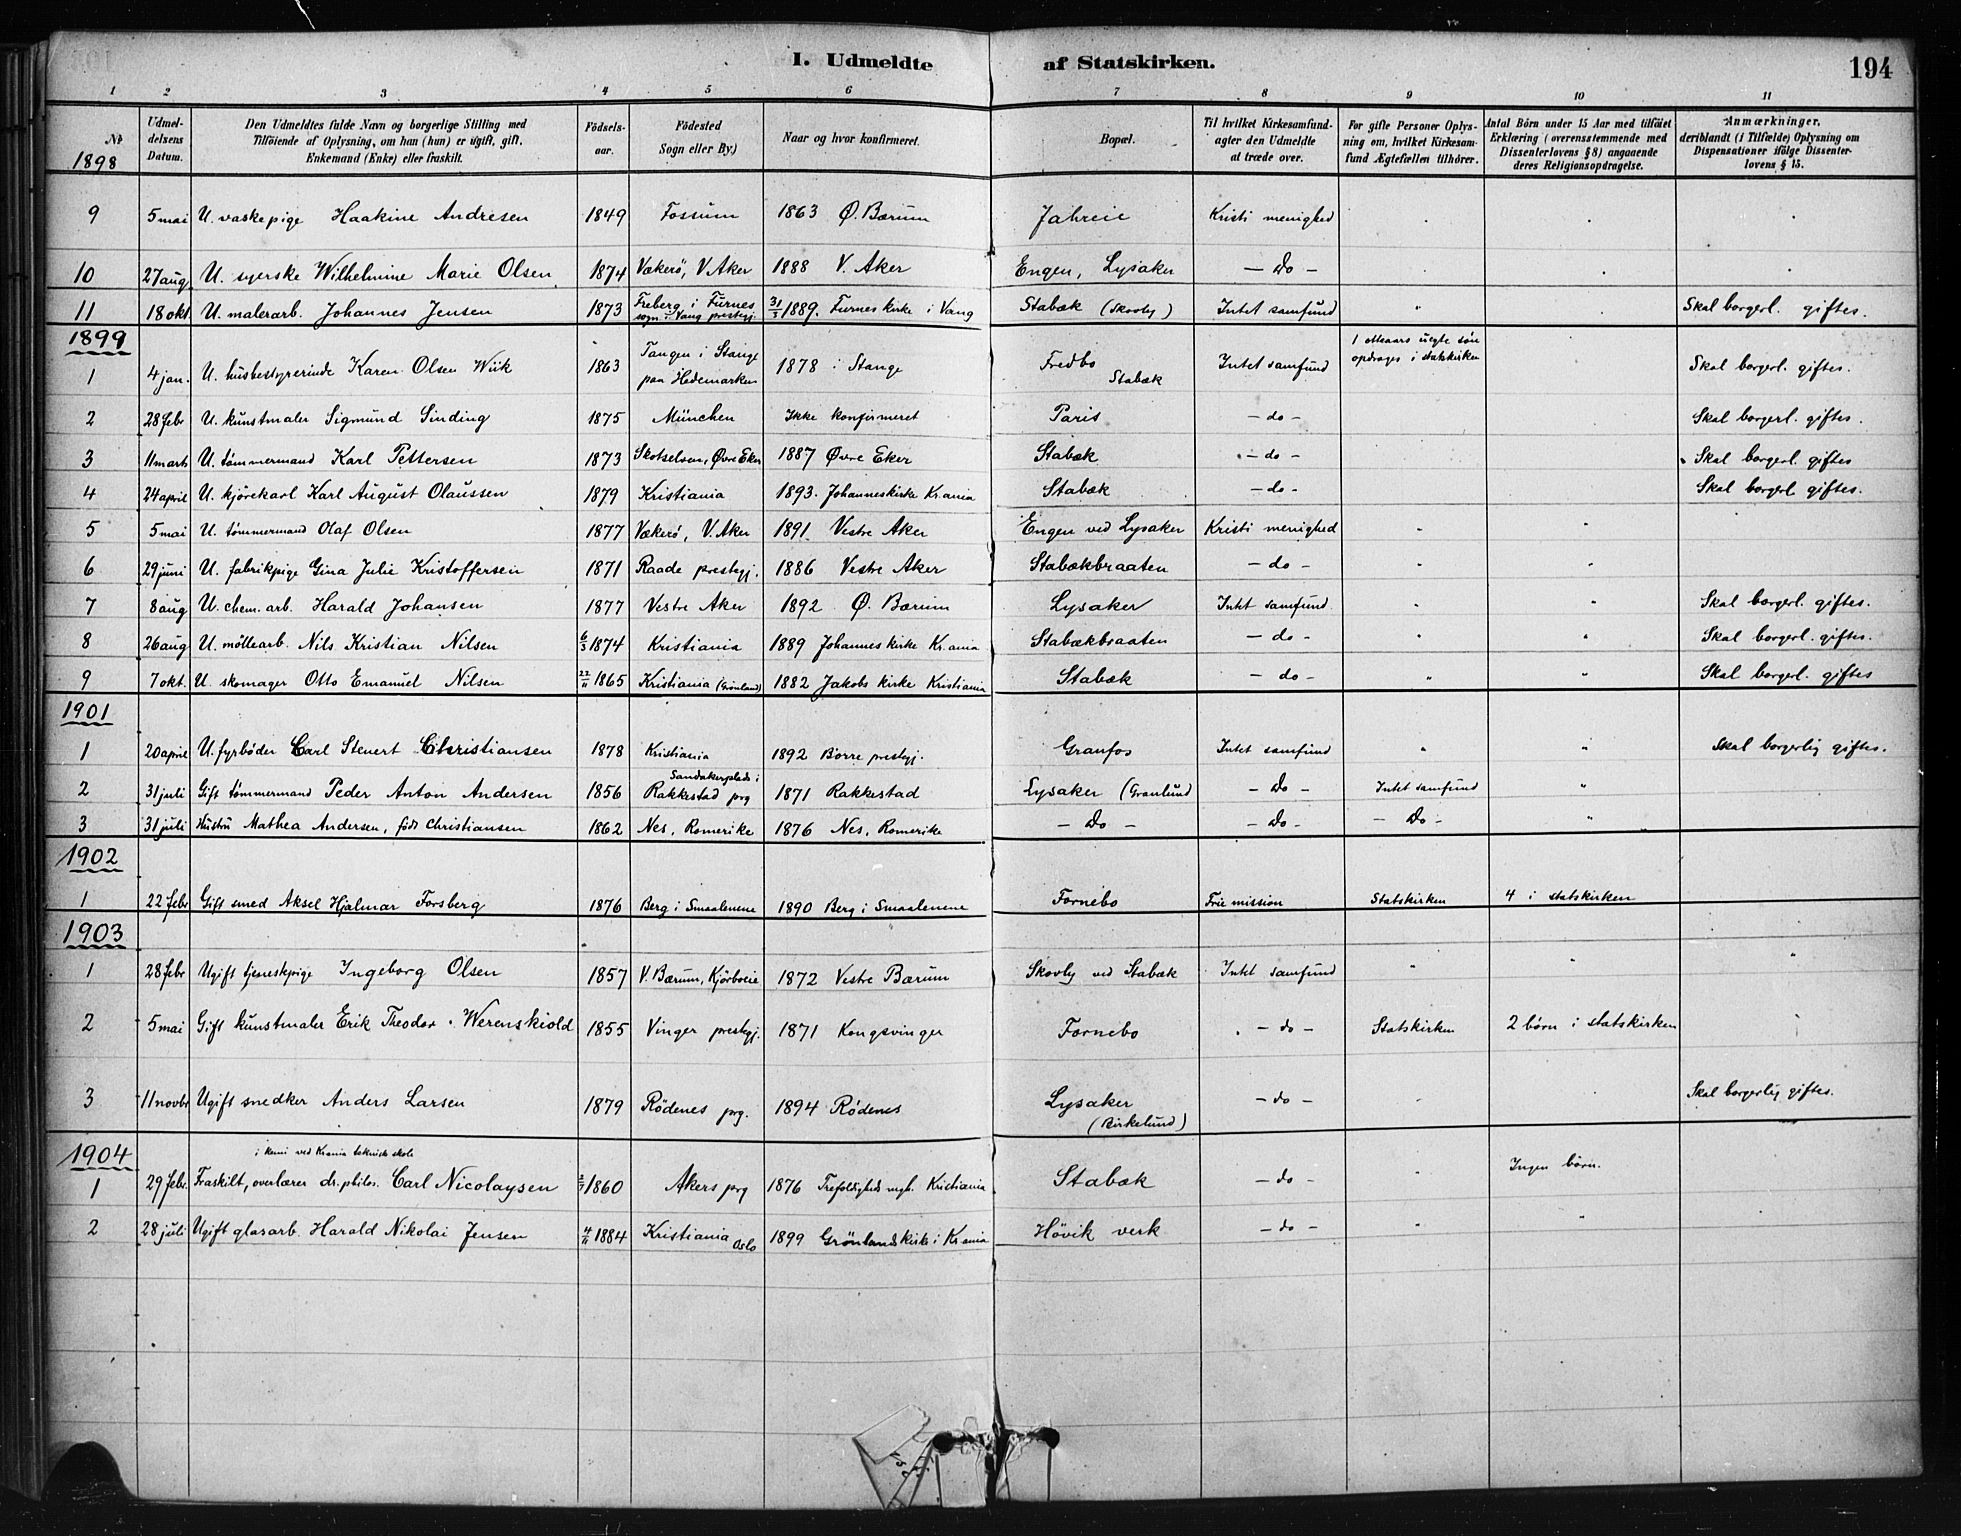 I. Udmeldte af Statskirken. 194
1 2 3 4 5 6 7 8 9 10 11
№ Udmeldelsens Datum. Den Udmeldtes fulde Navn og borgerlige Stilling med Tilföiende af Oplysning, om han (hun) er ugift, gift, Enkemand (Enke) eller fraskilt. Födselsaar. Födested Sogn eller By.) Naar og hvor konfirmeret. Bopæl. Til hvilket Kirkesamfund agter den Udmeldte at træde over. For gifte Personer Oplysning om, hvilket Kirkesamfund Ægtefællen tilhörer. Antal Börn under 15 Aar med tilföiet Erklæring (overensstemmende med Dissenterlovens § 8) angaaende deres Religionsopdragelse. Anmærkninger, deriblandt (i Tilfælde) Oplysning om Dispensationer ifölge Dissenterlovens § 15.
1898
9 5 mai U. vaskepige Haakine Andresen 1849 Fossum 1863 Ø. Bærum Jahreie Kristi menighed " " "
10 27 aug U. syerske Wilhelmine Marie Olsen 1874 Vækerö, V. Aker 1888 V. Aker Engen, Lysaker — Do — " " "
11 18 okt U. malerarb. Johannes Jensen 1873 Freberg i Furnes sogn i Vang prestegj. 31/3 1889. Furnes kirke i Vang Stabæk (Skovly) Intet samfund " " Skal borgerl. giftes.
1899
1 4 jan. U. husbestyrerinde Karen Olsen Wiik 1863 Tangen i Stange paa Hedemarken 1878 i Stange Fredbo Stabæk Intet samfund 1 otteaars uegte sön opdrages i statskirken Skal borgerl. giftes.
2 28 febr U. kunstmaler Sigmund Sinding 1875 München Ikke konfirmeret Paris — do — Skal borgerl. giftes.
3 11 marts U. tömmermand Karl Pettersen 1873 Skotselven, Øvre Eker 1887 Øvre Eker Stabæk — do — Skal borgerl. giftes
4 24 april U. kjörekarl Karl August Olaussen 1879 Kristiania 1893. Johanneskirke Kr.ania Stabæk — do — Skal borgerl giftes.
5 5 mai U. tömmermand Olaf Olsen 1877 Vækerö, V. Aker 1891 Vestre Aker Engen ved Lysaker Kristi menighed " "
6 29 juni U. fabrikpige Gina Julie Kristoffersen 1871 Raade prestegj. 1886 Vestre Aker Stabækbraaten — do — " "
7 8 aug U. chem. arb. Harald Johansen 1877 Vestre Aker 1892 Ø. Bærum Lysaker Intet samfund " " Skal borgerl. giftes.
8 26 aug U. möllearb. Nils Kristian Nilsen 6/3 1874 Kristiania 1889 Johannes kirke Kr.ania Stabækbraaten — do — " " Skal borgerl. giftes.
9 7 okt. U. skomager Otto Emanuel Nilsen 22/11 1865 Kristiania (Grönland) 1882 Jakobs kirke Kristiania Stabæk — do — " " Skal borgerl. giftes
1901
1 20 april U. fyrböder Carl Stenert Christiansen 1878 Kristiania 1892 Borre prestegj. Granfos Intet samfund " " Skal borgerlig giftes.
2 31 juli Gift tömmermand Peder Anton Andersen 1856 Sandakerplads i Rakkestad prg 1871 Rakkestad Lysaker (Granlund — Do — Intet samfund "
3 31 juli Hustru Mathea Andersen, födt Christiansen 1862 Nes, Romerike 1876 Nes, Romerike — Do — — Do — — Do — "
1902
1 22 febr Gift smed Aksel Hjalmar Forsberg 1876 Berg i Smaalenene 1890 Berg i Smaalenene Fornebo Frie mission Statskirken 4 i statskirken
1903
1 28 febr Ugift tjenestpige Ingeborg Olsen 1857 V. Bærum, Kjörboeie 1872 Vestre Bærum Skovly ved Stabæk Intet samfund " " "
2 5 mai Gift kunstmaler Erik Theodor Werenskiold 1855 Vinger prestegj. 1871 Kongsvinger Fornebo — do — Statskirken 2 börn i statskirken
3 11 novbr Ugift snedker Anders Larsen 1879 Rödenes prg. 1894 Rödenes Lysaker (Birkelund) — do — " " Skal borgerlig giftes.
1904
i kemi ved Krania tekniske skole
1 29 febr. Fraskilt, overlærer dr. philos. Carl Nicolaysen 2/7 1860 Akers prg 1876 Trefoldigheds mgh. Kristiania Stabæk — do — " Ingen börn.
2 28 juli Ugift glasarb. Harald Nikolai Jensen 4/11 1884 Kristiania Oslo 1899 Grönlands kirke i Kr.ania Hövik verk — do — " "